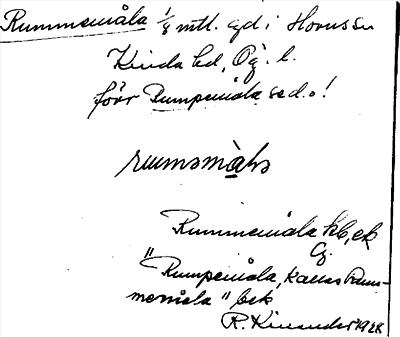 Rummemåla 1/8 mtl. gd i Horns sn
Kinda hd, Ög. l.
förr Rumpemåla se d.o!
rumsmåla
Rummemåla kb, ek
"Rumpemåla, kallas Rum-
memåla" bek
R. Kinander 1928